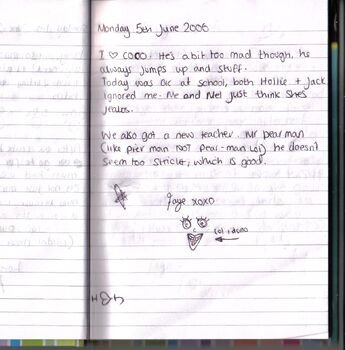 Monday 5th June 2006
I ♡ COCO. He's a bit too mad though, he
always jumps up and stuff.
Today was OK at school, both Hollie + Jack
ignored me. Me and Mel just think She's
jealos.
We also got a new teacher. Mr pearman
(like Pier man NOT pear-man lol) he doesn't
seem too strict, which is good.
Jaye xoxo
lol, i dunno